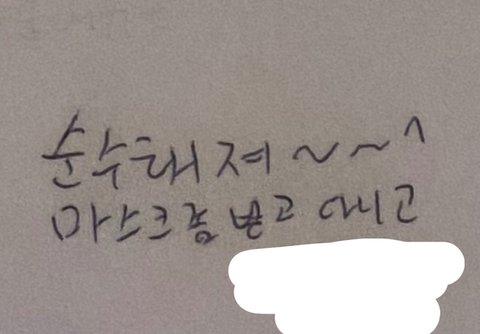 순수해져~~^
마스크좀 벗고 대니고